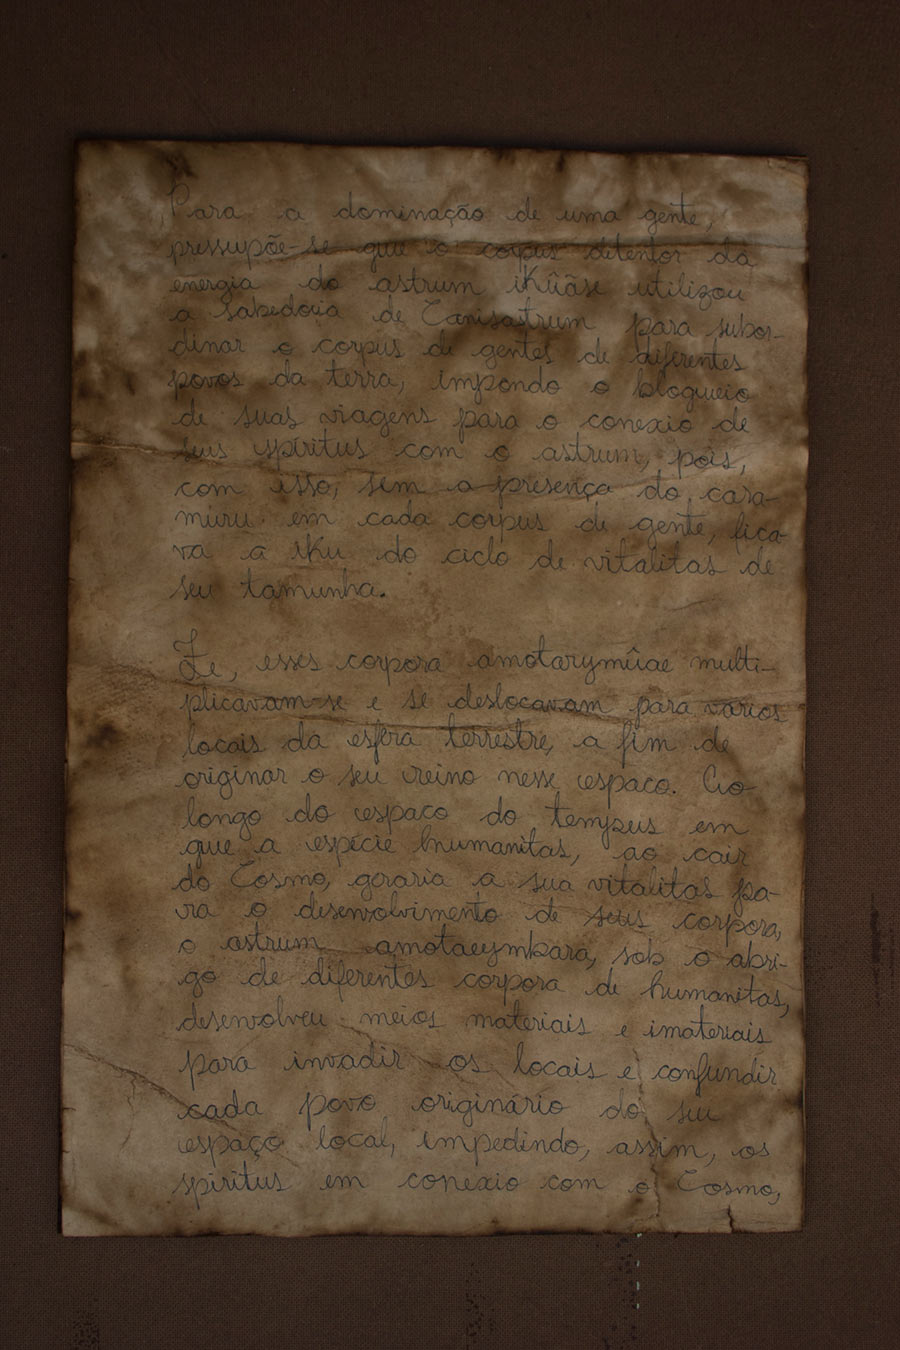 Para a dominação de uma gente,
pressupõe-se que o corpus detentor da
energia do astrum iKûãse utilizou
a sabedoria de Canisastrum para subor-
dinar o corpus de gentes de diferentes
povos da terra, impondo o bloqueio
de suas viagens para o conexio de
seus spíritus com o astrum, pois,
com isso, sem a presença do cara-
miuru em cada corpus de gente, fica-
va a iKu do ciclo de vitalitas de
seu tamunha.
Ze, esses corpora amotarymûae multi-
plicavam-se e se deslocavam para vários
locais da esfera terrestre, a fim de
originar o seu reino nesse espaco. Ao
longo do espaco do tempus em
que a espécie humanitas, ao cair
do Cosmo, geraria a sua vitalitas pa-
ra o desenvolvimento de seus corpora,
o astrum sob o abri-
go de diferentes corpora de humanitas,
desenvolveu meios materiais e imateriais
para invadir os locais e confundir
cada povo originário do seu
espaço local, impedindo, assim, os
spíritus em conexio com o Cosmo,